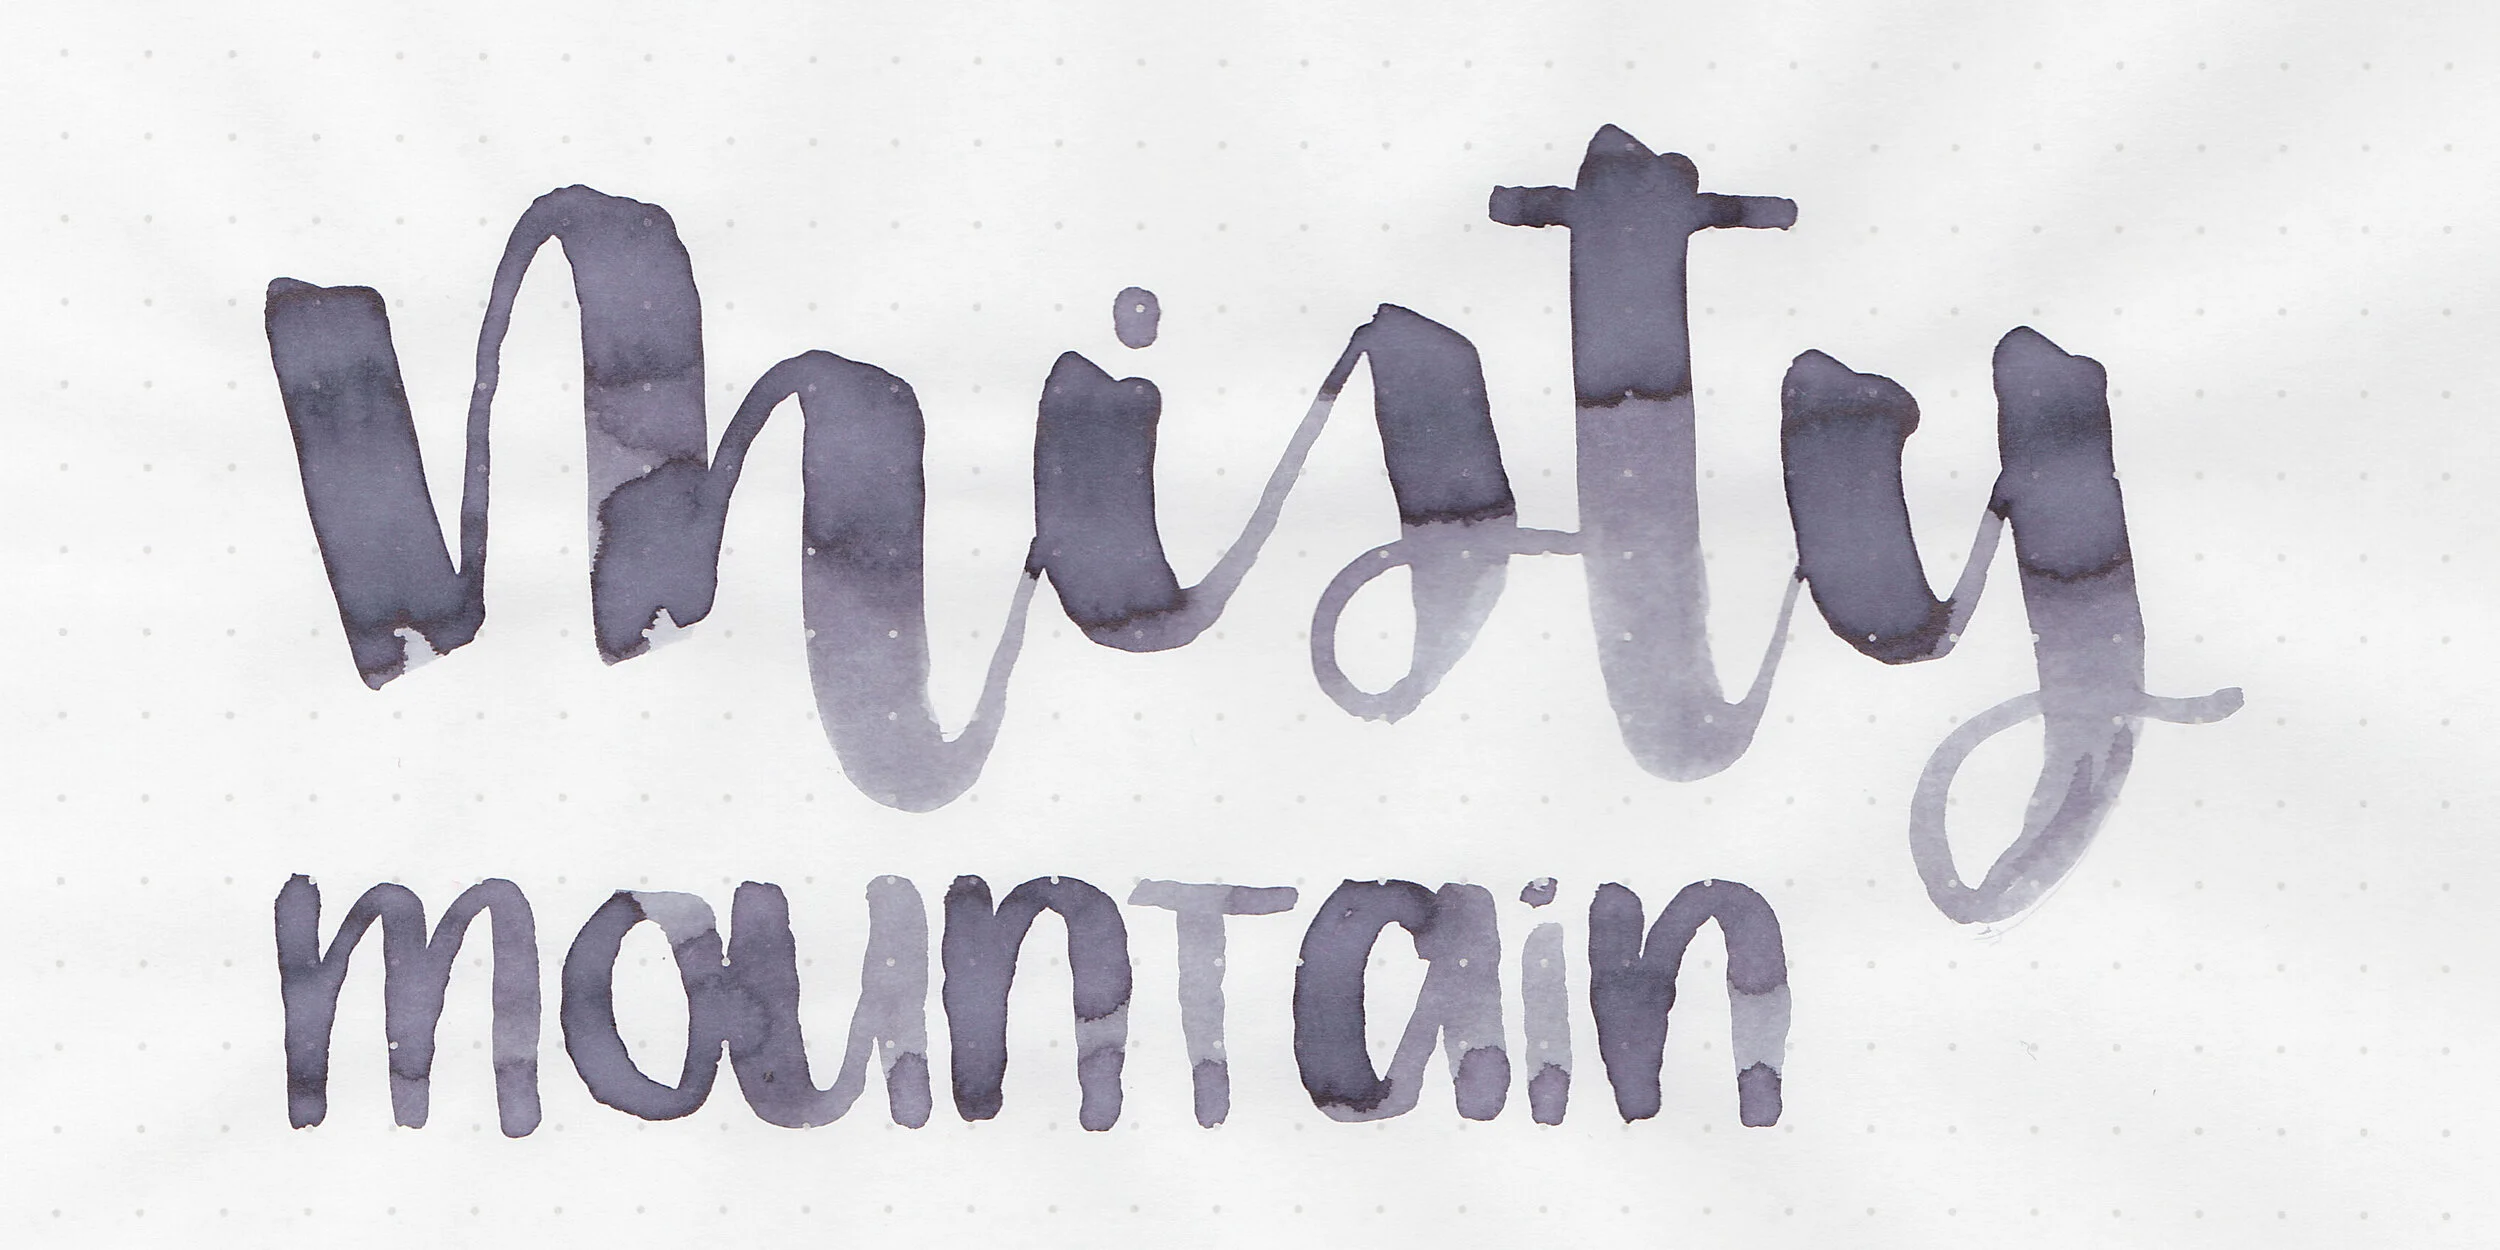 misty
mountain